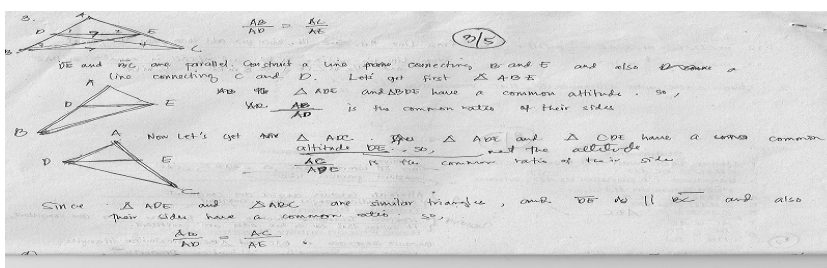 3. AB/AD = AC/AE
3/5
A
D 1 2 E
B 3 4 C
DE and BC are parallel. Construct a line connecting B and E and also a
line connecting C and D. Let's get first △ ABE
△ ADE and △BDE have a common altitude. so,
AB/AD is the common ratio of their sides
A
D E
B
Now Let's get △ ADC. △ ADE and △ CDE have a common
altitude DE. so, not the altitude
is the common ratio of their side
A
D E
C
Since △ ADE and △ABC are similar triangles, and DE is || BC and also
their sides have a common ratio. so,
AB/AD = AC/AE.